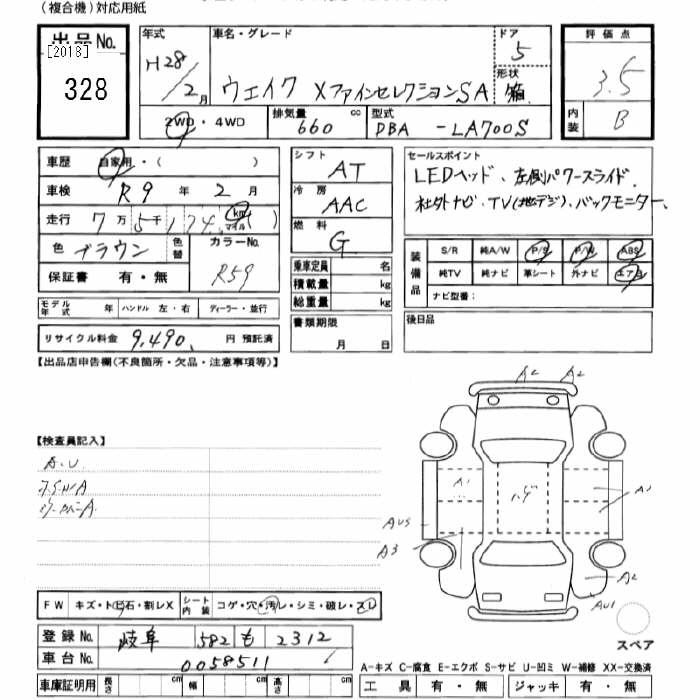 (複合機)対応用紙
出品No. [2018] 328
年式 H28/2月
車名・グレード ウェイク XファインセレクションSA
ドア 5
形状 箱
評価点 3.5
内装 B
2WD・4WD
排気量 660 cc
型式 DBA -LA700S
車歴 自家用・( )
車検 R9年2月
走行 7万5千174 km マイル( )
色 ブラウン 色替
カラーNo. R59
保証書 有・無
シフト AT
冷房 AAC
燃料 G
乗車定員 名
積載量 kg
総重量 kg
書類期限 月 日
セールスポイント
LEDヘッド、左側パワースライド、
社外ナビ・TV(地デジ)、バックモニター、
装備品 S/R 純A/W P/S P/W ABS
純TV 純ナビ 革シート 外ナビ エアB
ナビ型番:
後日品
モデル年式 年 ハンドル 左・右 ディーラー・並行
リサイクル料金 9,490 円 預託済
【出品店申告欄(不良箇所・欠品・注意事項等)】
【検査員記入】
A.U
A2 A2
A1
A1
AU3
A3
A2
AU1
FW キズ・トビ石・割レX シート内装 コゲ・穴・汚レ・シミ・破レ・スレ
登録No. 岐阜 582 も 2312
車台No. 0058511
車庫証明用 長さ cm 幅 cm 高さ cm
スペア
A-キズ C-腐食 E-エクボ S-サビ U-凹ミ W-補修 XX-交換済
工具 有・無 ジャッキ 有・無